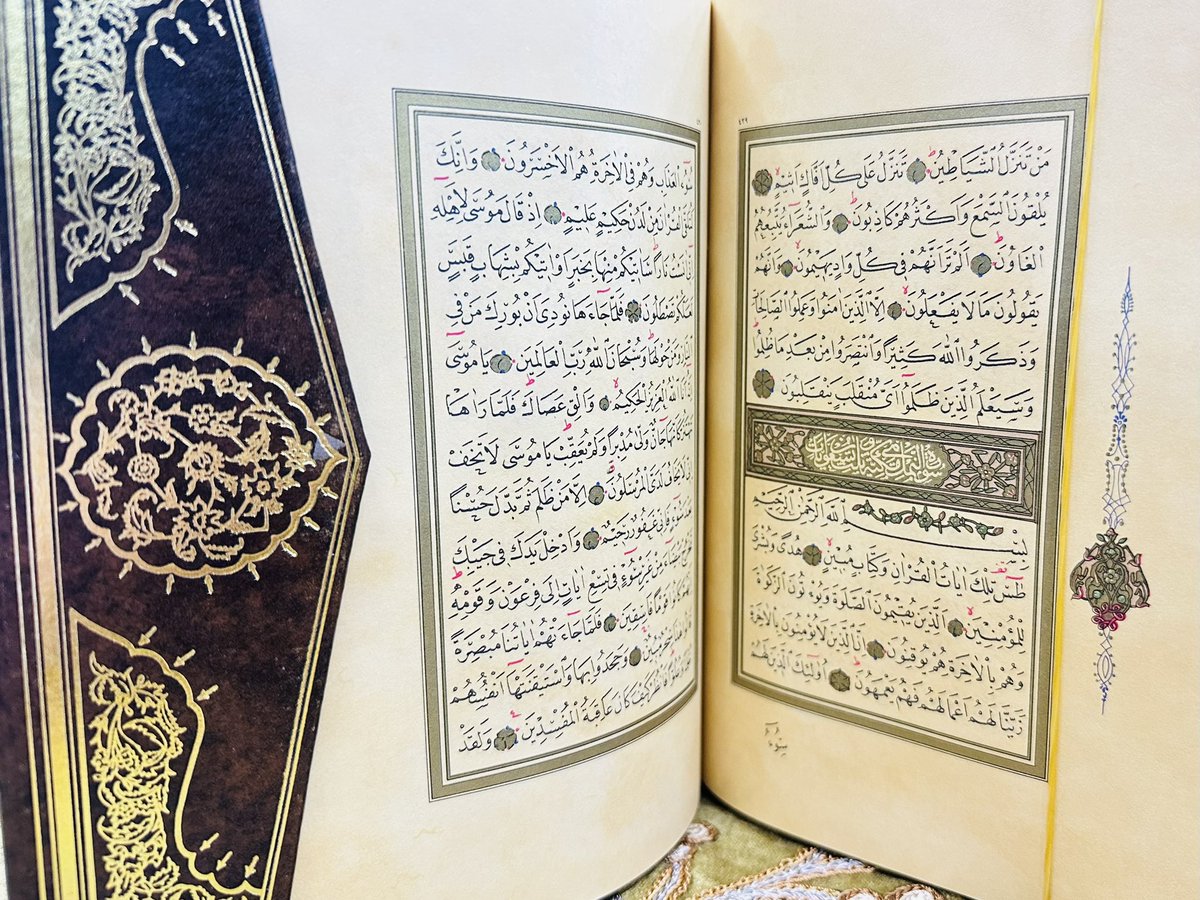 ٤٢٩
مَنْ تَنَزَّلُ الشَّيَاطِينُ تَنَزَّلُ عَلٰى كُلِّ اَفَّاكٍ اَثِيمٍ
يُلْقُونَ السَّمْعَ وَاَكْثَرُهُمْ كَاذِبُونَ وَالشُّعَرَاءُ يَتَّبِعُهُمُ
الْغَاوُنَ اَلَمْ تَرَ اَنَّهُمْ فِي كُلِّ وَادٍ يَهِيمُونَ وَاَنَّهُمْ
يَقُولُونَ مَا لَا يَفْعَلُونَ اِلَّا الَّذِينَ اٰمَنُوا وَعَمِلُوا الصَّالِحَاتِ
وَذَكَرُوا اللّٰهَ كَثِيرًا وَانْتَصَرُوا مِنْ بَعْدِ مَا ظُلِمُوا
وَسَيَعْلَمُ الَّذِينَ ظَلَمُوا اَيَّ مُنْقَلَبٍ يَنْقَلِبُونَ
بِسْمِ اللّٰهِ الرَّحْمٰنِ الرَّحِيمِ
طٰسٓ تِلْكَ اٰيَاتُ الْقُرْاٰنِ وَكِتَابٍ مُبِينٍ هُدًى وَبُشْرٰى
لِلْمُؤْمِنِينَ الَّذِينَ يُقِيمُونَ الصَّلٰوةَ وَيُؤْتُونَ الزَّكٰوةَ
وَهُمْ بِالْاٰخِرَةِ هُمْ يُوقِنُونَ اِنَّ الَّذِينَ لَا يُؤْمِنُونَ بِالْاٰخِرَةِ
زَيَّنَّا لَهُمْ اَعْمَالَهُمْ فَهُمْ يَعْمَهُونَ اُولٰئِكَ الَّذِينَ لَهُمْ
سُوءُ
سُوءُ الْعَذَابِ وَهُمْ فِي الْاٰخِرَةِ هُمُ الْاَخْسَرُونَ وَاِنَّكَ
لَتُلَقَّى الْقُرْاٰنَ مِنْ لَدُنْ حَكِيمٍ عَلِيمٍ اِذْ قَالَ مُوسٰى لِاَهْلِهِ
اِنِّي اٰنَسْتُ نَارًا سَاٰتِيكُمْ مِنْهَا بِخَبَرٍ اَوْ اٰتِيكُمْ بِشِهَابٍ قَبَسٍ
لَعَلَّكُمْ تَصْطَلُونَ فَلَمَّا جَاءَهَا نُودِيَ اَنْ بُورِكَ مَنْ فِي
النَّارِ وَمَنْ حَوْلَهَا وَسُبْحَانَ اللّٰهِ رَبِّ الْعَالَمِينَ يَا مُوسٰى
اِنَّهُ اَنَا اللّٰهُ الْعَزِيزُ الْحَكِيمُ وَاَلْقِ عَصَاكَ فَلَمَّا رَاٰهَا
تَهْتَزُّ كَاَنَّهَا جَانٌّ وَلّٰى مُدْبِرًا وَلَمْ يُعَقِّبْ يَا مُوسٰى لَا تَخَفْ
اِنِّي لَا يَخَافُ لَدَيَّ الْمُرْسَلُونَ اِلَّا مَنْ ظَلَمَ ثُمَّ بَدَّلَ حُسْنًا
بَعْدَ سُوءٍ فَاِنِّي غَفُورٌ رَحِيمٌ وَاَدْخِلْ يَدَكَ فِي جَيْبِكَ
تَخْرُجْ بَيْضَاءَ مِنْ غَيْرِ سُوءٍ فِي تِسْعِ اٰيَاتٍ اِلٰى فِرْعَوْنَ وَقَوْمِهِ
اِنَّهُمْ كَانُوا قَوْمًا فَاسِقِينَ فَلَمَّا جَاءَتْهُمْ اٰيَاتُنَا مُبْصِرَةً
قَالُوا هٰذَا سِحْرٌ مُبِينٌ وَجَحَدُوا بِهَا وَاسْتَيْقَنَتْهَا اَنْفُسُهُمْ
ظُلْمًا وَعُلُوًّا فَانْظُرْ كَيْفَ كَانَ عَاقِبَةُ الْمُفْسِدِينَ وَلَقَدْ